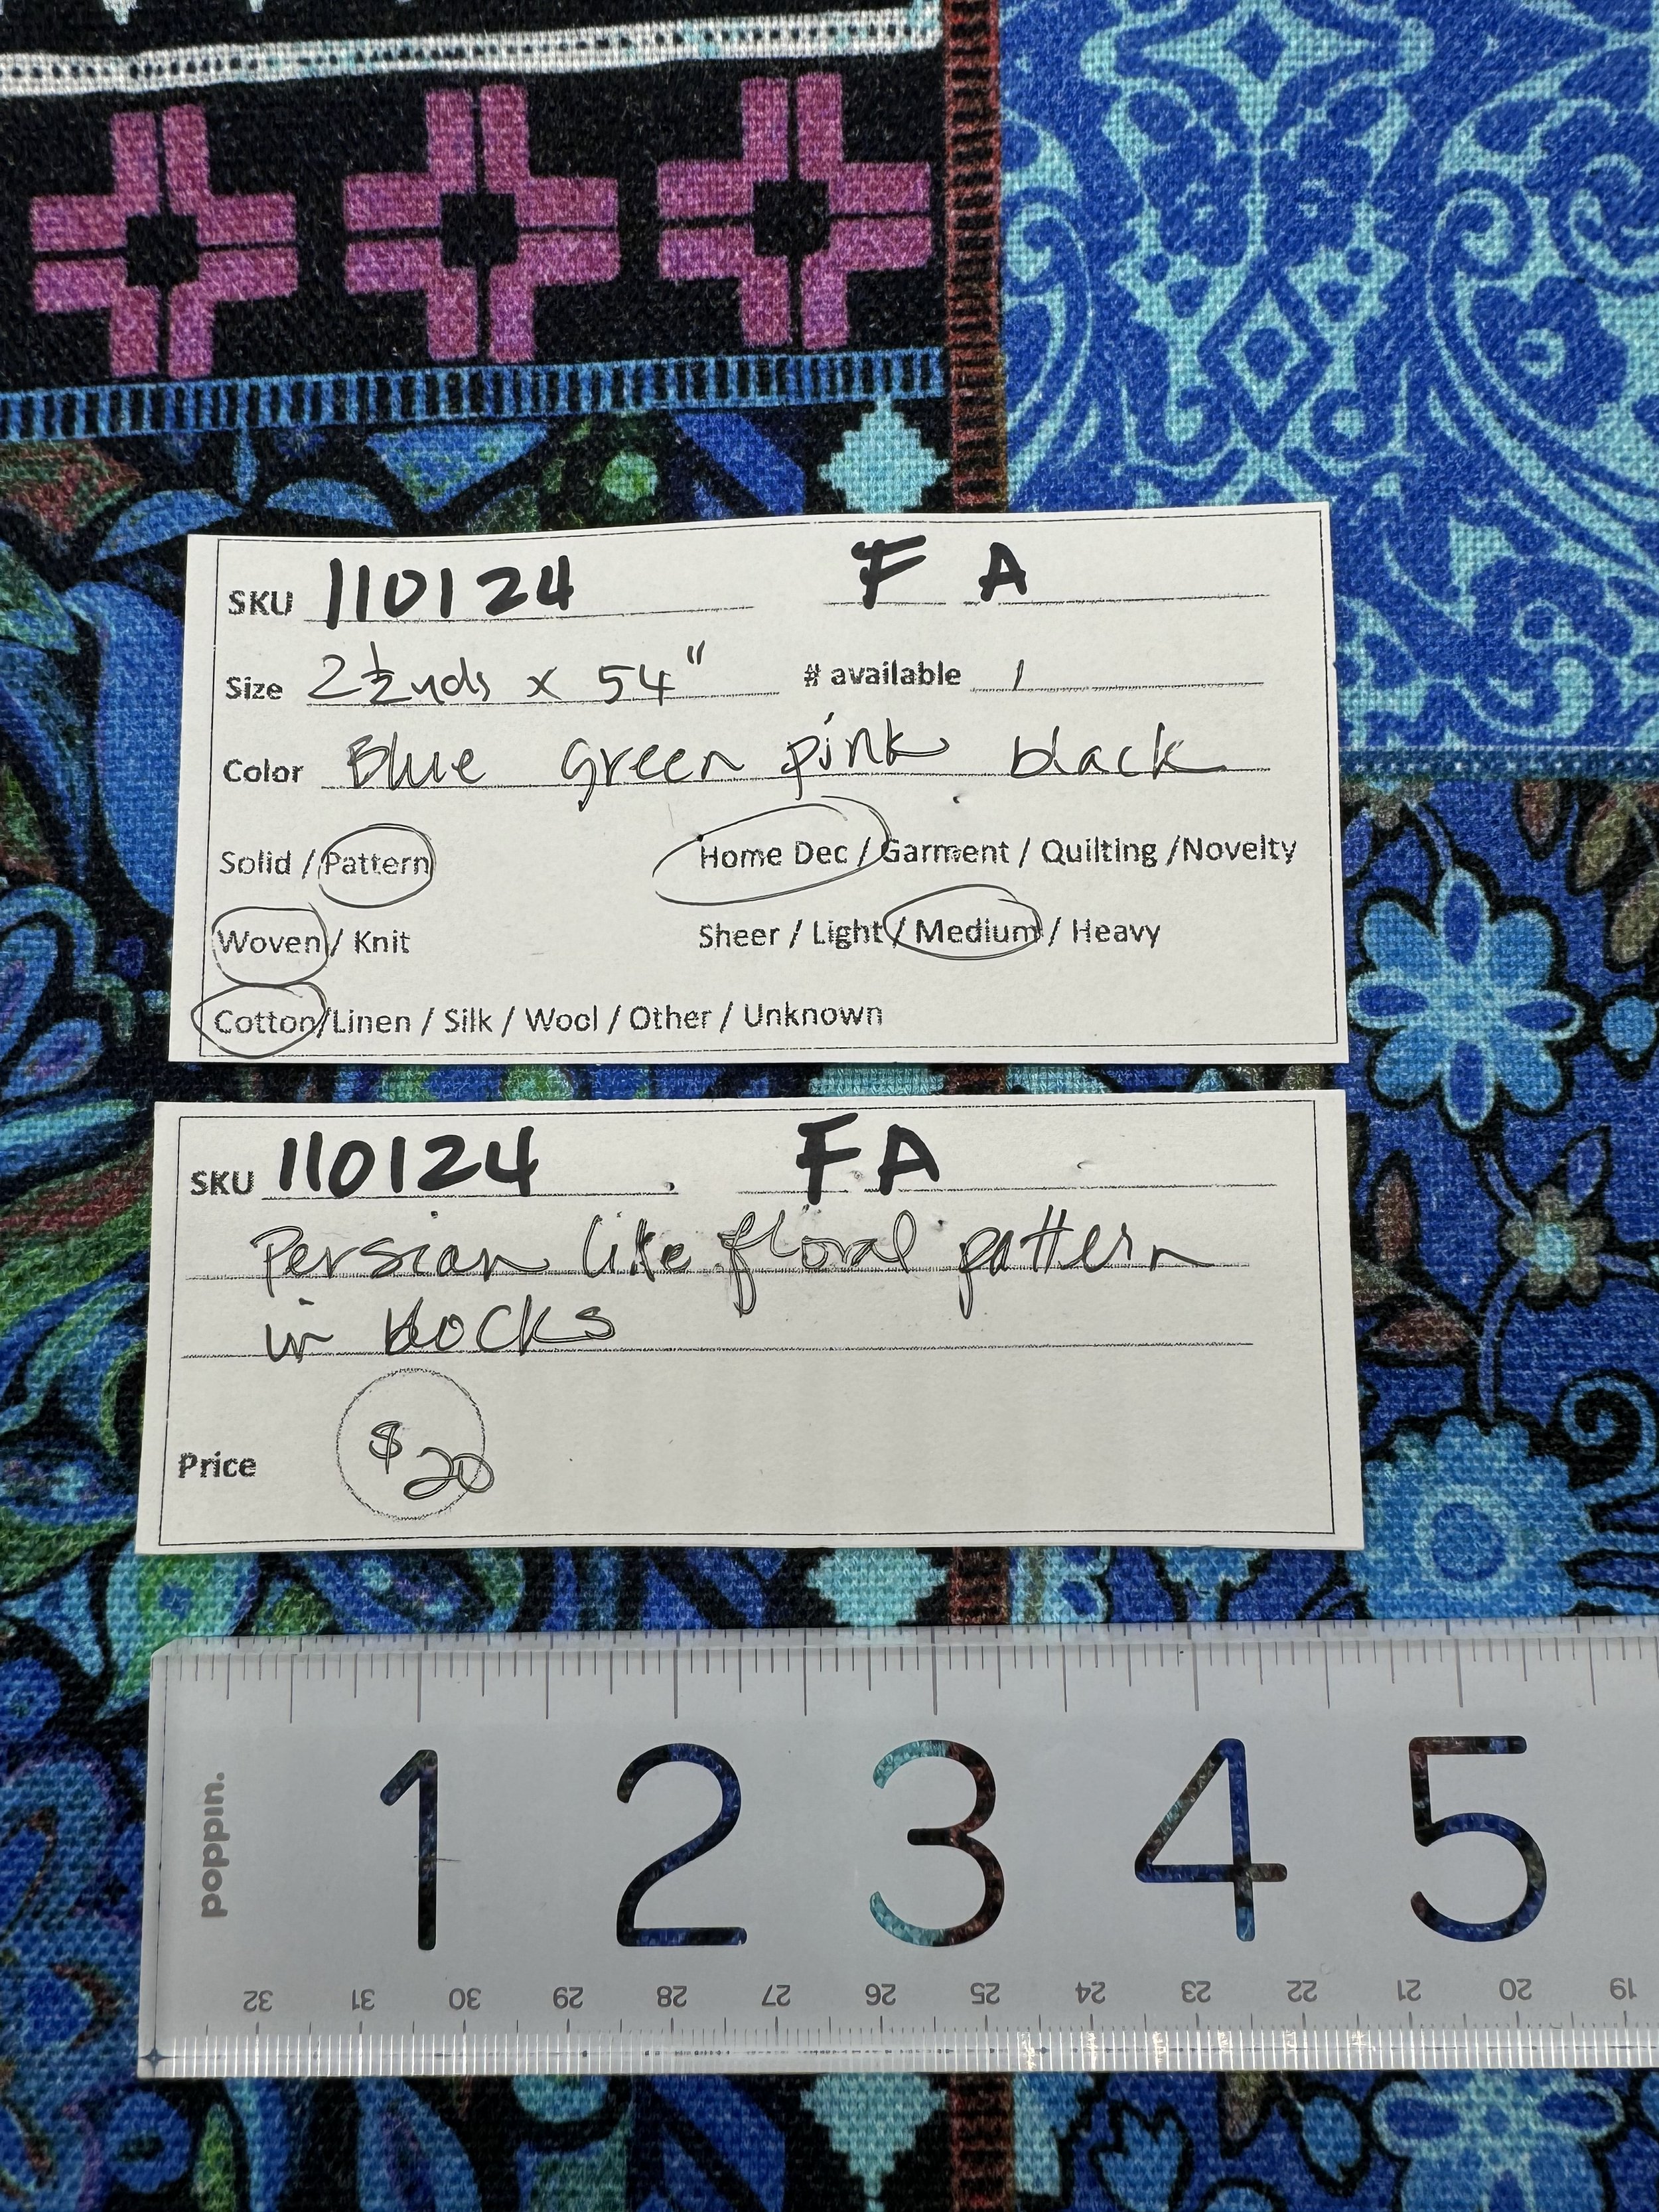 SKU 110124 F A
Size 2 1/2 yds x 54" # available 1
Color Blue green pink black
Solid / Pattern Home Dec / Garment / Quilting /Novelty
Woven / Knit Sheer / Light / Medium / Heavy
Cotton/Linen / Silk / Wool / Other / Unknown
SKU 110124 F A
Persian like floral pattern
in blocks
Price $20
poppin.
1 2 3 4 5
32 31 30 29 28 27 26 25 24 23 22 21 20 19